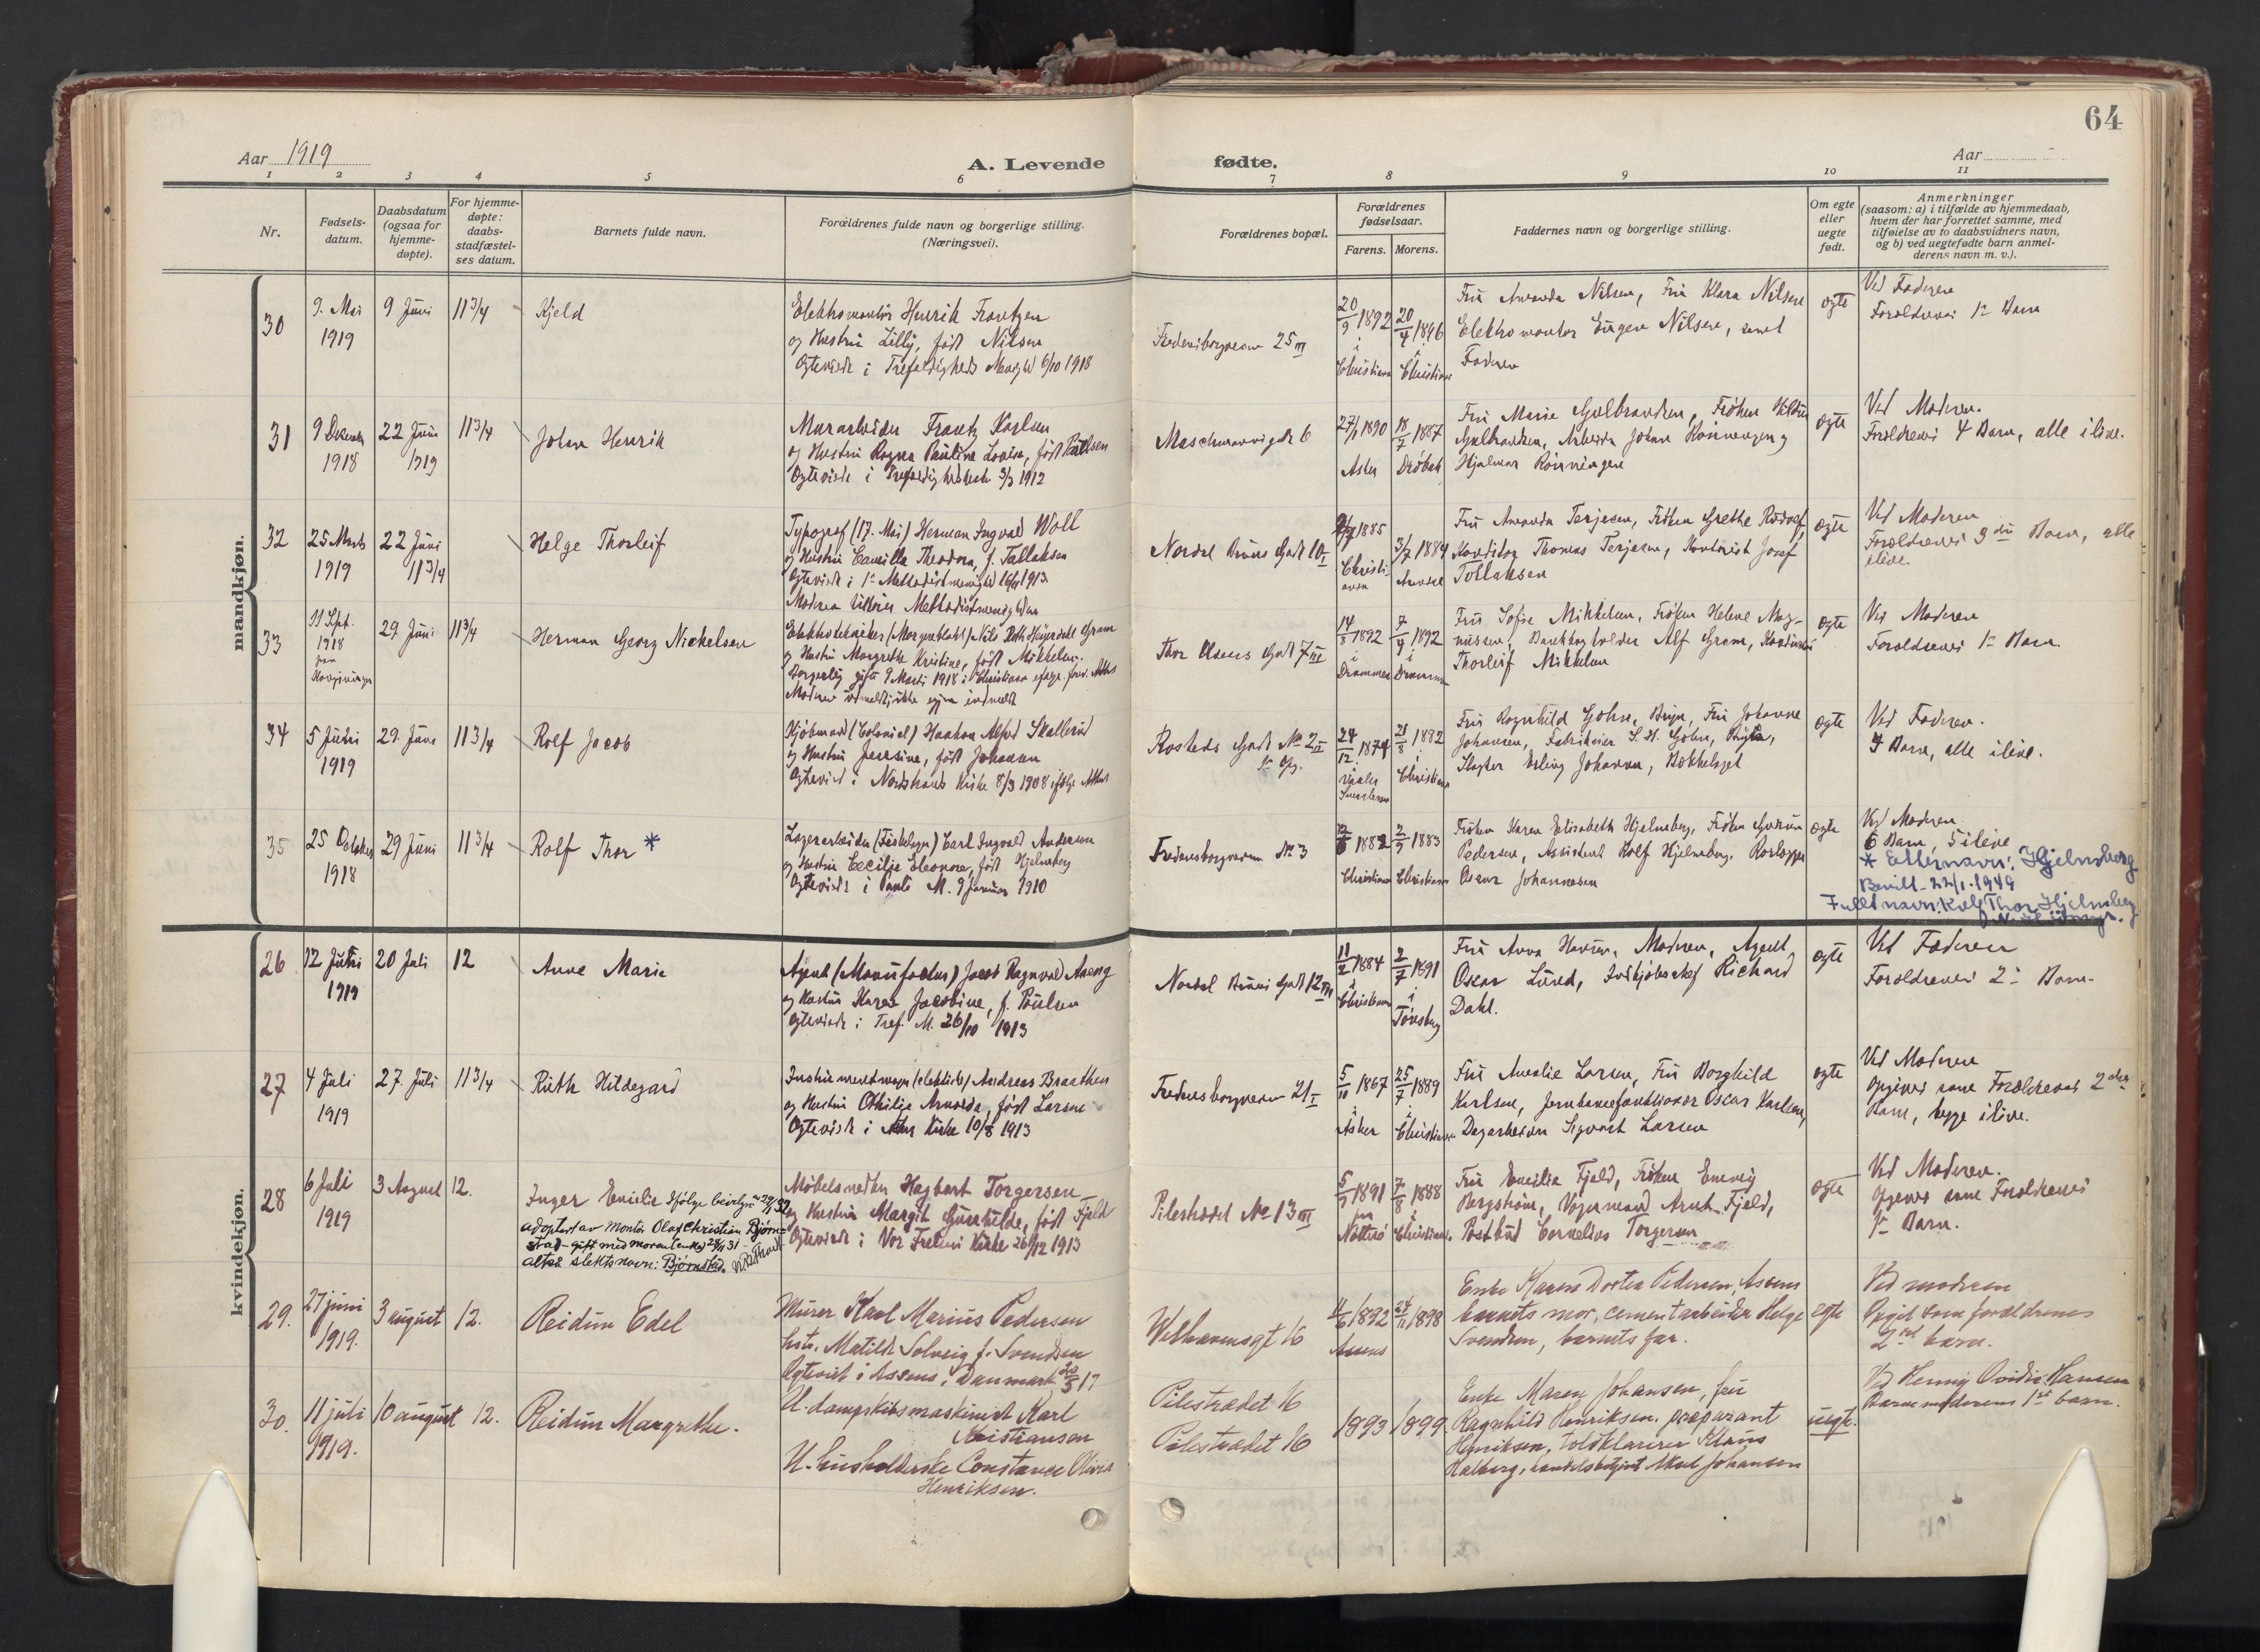 64
Aar 1919
A. Levende
fødte.
Aar
1 2 3 4 5 6 7 8 9 10 11
Nr.
Fødsels-
datum.
Daabsdatum
(ogsaa for
hjemme-
døpte).
For hjemme-
døpte:
daabs-
stadfæstel-
ses datum.
Barnets fulde navn.
Forældrenes fulde navn og borgerlige stilling.
(Næringsvei).
Forældrenes bopæl.
Forældrenes
fødselsaar.
Farens. Morens.
Faddernes navn og borgerlige stilling.
Om egte
eller
uegte
født.
Anmerkninger
(saasom: a) i tilfælde av hjemmedaab,
hvem der har forrettet samme, med
tilføielse av to daabsvidners navn,
og b) ved uegtefødte barn anmel-
derens navn m. v.).
mandkjøn.
30
9. Mai
1919
9 Juni
11 3/4
Kjeld
Elektromontör Henrik Frantzen
og Hustru Lilly, født Nilsen
Ægteviede i Trefoldigheds Menighed 6/10 1918
Fredensborgveien 25 III
20/9 1892
i
Christiania
20/4 1896
i
Christiania
Fru Amanda Nilsen, Fru Klara Nilsen
Elektromontør Eugen Nilsen, samt
Faderen
ægte
Ved Faderen
Forældrenes 1ste Barn
31
9 Decemb
1918
22 Juni
1919
11 3/4
Johan Henrik
Murarbeider Frantz Karlsen
og Hustru Ragna Pauline Lovise, født
Ægteviede i Trefoldighedskirke 3/3 1912
6
27/1 1890
Asker
18/7 1887
Drøbak
Fru Marie Gulbrandsen, Frøken
Gulbrandsen, Arbeider Johan Rønningen og
Hjalmar Rønningen
ægte
Ved Moderen.
Forældrenes 4 Barn, alle ilive.
32
25 Marts
1919
22 Juni
11 3/4
Helge Thorleif
Typograf (17. Mai) Herman Ingvald Woll
og Hustru Camilla Theodora, f. Tallaksen
Ægteviede i 1ste Methodistmenighed 1913
Moderen tilhører Methodistmenigheden
Nordre Bruns Gade 10 I
1885
Christi-
ania
3/7 1884
Arendal
Fru Amanda Terjesen, Frøken Grethe Rudolf,
Konditor Thomas Terjesen, Kontorist Josef
Tollaksen
ægte
Ved Moderen
Forældrenes 3die Barn, alle
ilive.
33
11 Sept.
1918
paa
Kongsvinger
29 Juni
11 3/4
Herman Georg Nickelsen
Elektrotekniker (Morgenbladet) Nils Roth Heyerdahl Gram
og Hustru Margrethe Kristine, født Mikkelsen.
Borgerlig gifte 9 Marts 1918 i Christiania ifølge frev. Attest
Moderen udmeldt, ikke igjen indmeldt
Thor Olsens Gade 7 III
14/8 1892
i
Drammen
7/9 1892
i
Drammen
Fru Sofie Mikkelsen, Frøken Helene Mag-
nussen, Bankbogholder Alf Gram,
Thorleif Mikkelsen
ægte
Ved Moderen
Forældrenes 1ste Barn.
34
5 Juni
1919
29. Juni
11 3/4
Rolf Jacob
Kjøbmand (Colonial) Haakon Alfred Skallerud
og Hustru Jensine, født Johansen
Ægteviet i Nordstrands Kirke 8/3 1908 ifølge Attest
Rosteds Gade No 2 II
24/12 1874
i
Vaaler
Smaalenene
21/8 1882
i
Christiania
Fru Ragnhild Gohn, Bryn, Fru Johanne
Johansen, Fabrikeier S. H. Gohn, Bryn,
Slagter Erling Johansen, Bækkelaget
ægte
Ved Faderen.
7 Barn, alle ilive.
35
25 Oktober
1918
29 Juni
11 3/4
Rolf Thor *
Lagerarbeider Carl Ingvald Andersen
og Hustru Cecilie Eleonore, født Hjelmsberg
Ægteviede i Pauls M. 9 Januar 1910
Fredensborgveien No 3
1882
Christiania
2/5 1883
Christiania
Frøken Karen Elisabeth Hjelmsberg, Frøken Gudrun
Pedersen, Assistent Rolf Hjelmsberg,
Oscar Johannesen
ægte
Ved Moderen
6 Barn, 5 ilive
* Etternavn: Hjelmsberg
Bevill. 22/1-1949
Fullt navn: Rolf Thor Hjelmsberg
kvindekjøn.
26
12 Juni
1919
20 Juli
12
Anne Marie
Agent (Manufactur) Jacob Ragnvald Aseng
og Hustru Karen Jacobine, f. Poulsen
Ægteviede i Tref. M. 26/10 1913
Nordre Bruns Gade 12 III
11/2 1884
i
Christiania
2/7 1891
i
Tønsberg
Fru Anna Hansen, Moderen, Agent
Oscar Lund, Indkjøbschef Richard
Dahl.
ægte
Ved Faderen
Forældrenes 2det Barn.
27
4 Juli
1919
27 Juli
11 3/4
Ruth Hildegard
Instrumentmager (elektriske) Andreas Braathen
og Hustru Othilie Arnolda, født Larsen
Ægteviede i Kirke 10/8 1913
Fredensborgveien 21 I
5/10 1867
i
Asker
25/7 1889
i
Christiania
Fru Amalie Larsen, Fru Borghild
Karlsen, Jernbanefunktionær Oscar Karlsen,
Dagarbeider Sigvart Larsen
ægte
Ved Moderen
opgives som Forældrenes 2det
Barn, begge ilive.
28
6 Juli
1919
3 August
12.
Inger Emilie Ifølge bevilgn. av 29/1 32
adoptert av montör Olaf Christian Bjørn-
stad - gift med moren (enke) 28/11 31 -
altså slektsnavn: Bjørnstad.
Møbelsnedker Hagbart Torgersen
og Hustru Margit Gunhilde, født Fjeld
Ægteviede i Vor Frelsers Kirke 26/12 1913
Pilestrædet No 13 III
5/9 1891
paa
Nøtterø
7/8 1888
i
Christiania.
Fru Emilie Fjeld, Frøken Enevig
Bergstrøm, Vognmand Arnt Fjeld,
Postbud Cornelius Torgersen
ægte
Ved Moderen.
Opgives som Forældrenes
1ste Barn.
29.
27 juni
1919.
3 august
12.
Reidun Edel
Murer Karl Marius Pedersen
hstr. Matilde Solveig f. Svendsen
Ægteviet i Assens, Danmark 20/5 17
Welhavensgt 16
4/6 1892
Assens
24/11 1898
Enke Karen Dortea Pedersen, Assens
barnets mor, cementarbeider Helge
Svendsen, barnets far.
egte
Ved moderen
Opgit som forældrenes
2net barn.
30.
11 juli
1919.
10 august
12.
Reidun Margrethe.
U. dampskibsmaskinist Karl
Kristiansen
U. husholderske Constance Olivia
Henriksen.
Pilestrædet 16
Pilestrædet 16
1893
1899
Enke Maren Johansen, fru
Ragnhild Henriksen, præparant
Henriksen, toldklarerer Klaus
Halberg, handelsbetjent Johansen
uegte.
Ved Henny Ovidia Hansen
Barnemoderens 1ste barn.